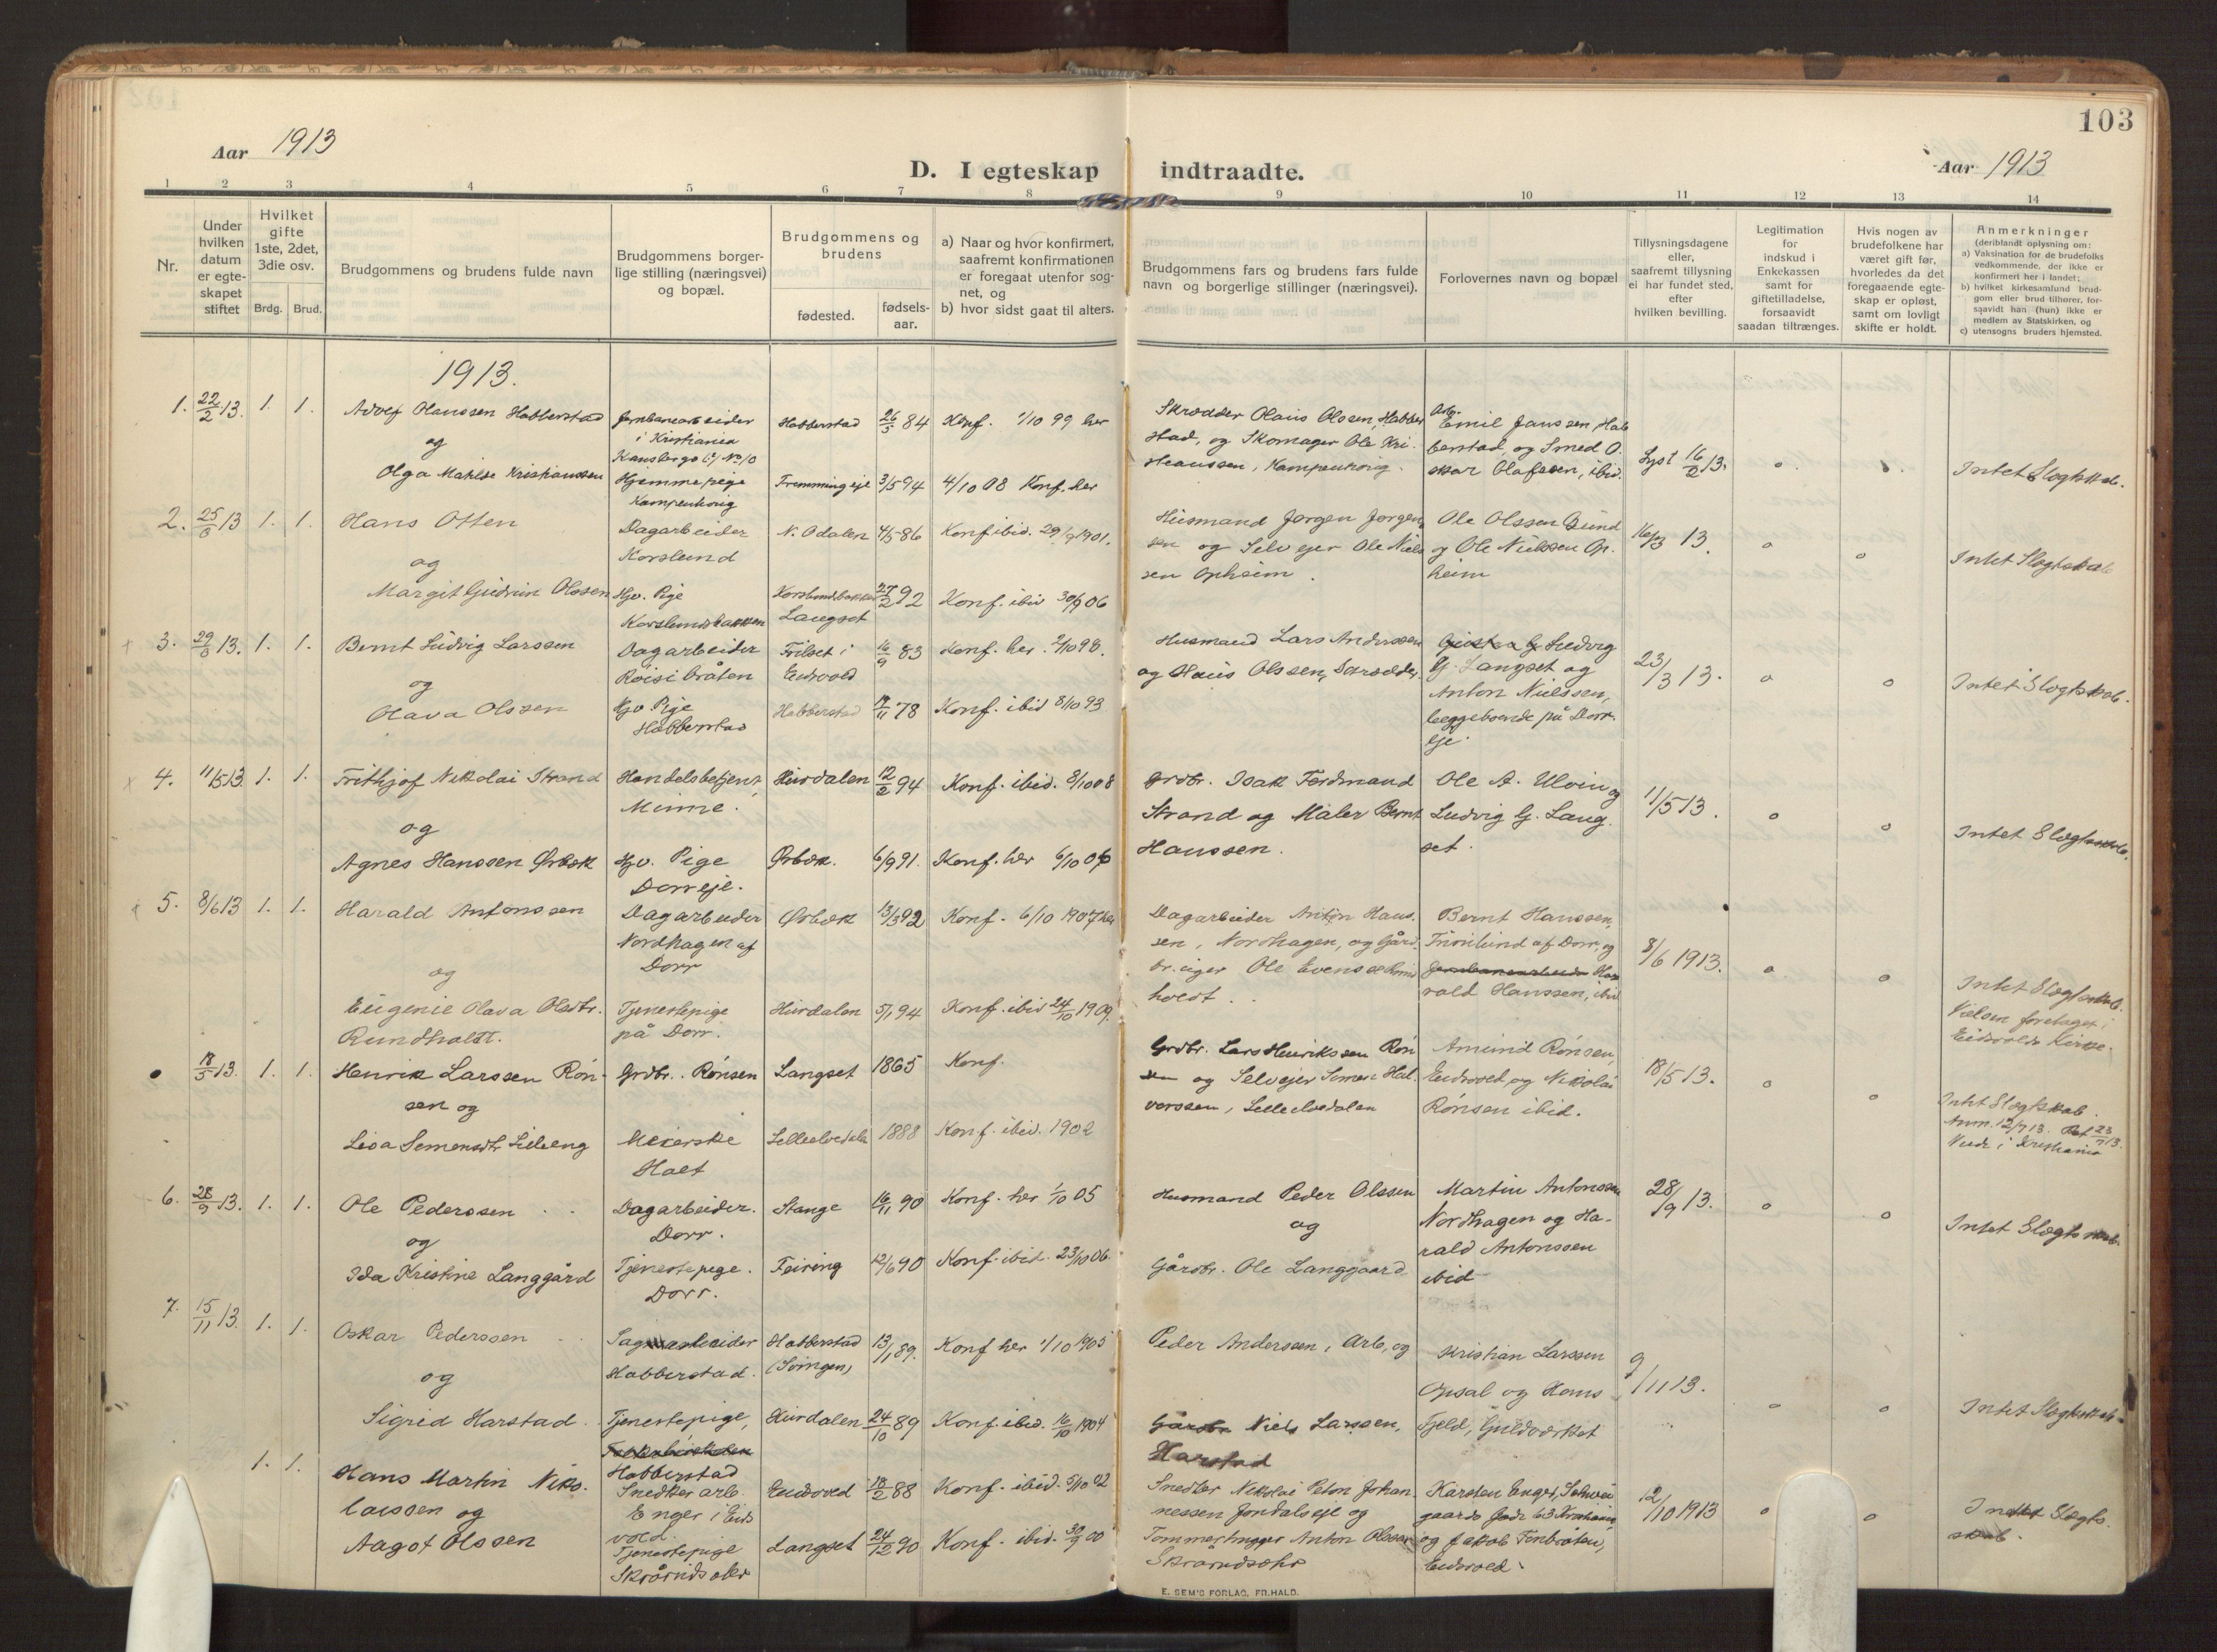 103
Aar 1913
Aar 1913
D. I egteskap indtraadte.
1 2 3 4 5 6 7 8 9 10 11 12 13 14
Nr.
Under
hvilken
datum
er egte-
skapet
stiftet
Hvilket
gifte
1ste, 2det,
3die osv.
Brdg. Brud.
Brudgommens og brudens fulde navn
Brudgommens borger-
lige stilling (næringsvei)
og bopæl.
Brudgommens og
brudens
fødested.
fødsels-
aar.
a) Naar og hvor konfirmert,
saafremt konfirmationen
er foregaat utenfor sog-
net, og
b) hvor sidst gaat til alters.
Brudgommens fars og brudens fars fulde
navn og borgerlige stillinger (næringsvei).
Forlovernes navn og bopæl
Tillysningsdagene
eller,
saafremt tillysning
ei har fundet sted,
efter
hvilken bevilling.
Legitimation
for
indskud i
Enkekassen
samt for
giftetilladelse,
forsaavidt
saadan tiltrænges.
Hvis nogen av
brudefolkene har
været gift før,
hvorledes da det
foregaaende egte-
skap er opløst,
samt om lovligt
skifte er holdt.
Anmerkninger
(deriblandt oplysning om:
a) Vaksination for de brudefolks
vedkommende, der ikke er
konfirmert her i landet;
b) hvilket kirkesamfund brud-
gom eller brud tilhører, for-
saavidt han (hun) ikke er
medlem av Statskirken, og
c) utensogns bruders hjemsted.
1913.
1. 22/2 13. 1. 1.
Adolf Olaussen Habberstad
og
Olga Mathilde Kristianssen
Jernbanearbeider
i Kristiania
Hjemmepige
Habberstad 26/5 84 Konf. 1/10 99 her
3/5 94 4/10 08 Konf. her
Skrædder Olaus Olssen, Habber
stad, og Skomager Ole Kri-
stianssen,
Arb.
Emil Janssen, Hab
berstad, og Smed O-
skar Olafssen, ibid.
Lyst 16/2 13.
Intet Slegtskab.
2. 25/3 13 1. 1.
Hans Otten
og
Margit Gudrun Olssen
Dagarbeider
Korslund
Hjv. Pige
Korslundbakken
N. Odalen 4/5 86 Konf. ibid. 29/9 1901.
Korslundbakken
Langset
27/2 92 Konf. ibid 30/9 06
Husmand Jørgen Jørgen
sen og Selveier Ole Niels
sen Opheim.
Ole Olssen Sund
og Ole Nielssen Op-
heim
16/3 13.
Intet Slegtskab
3. 29/3 13. 1. 1.
Bernt Ludvig Larssen
og
Olava Olssen
Dagarbeider
Roisibråten
Hjv Pige
Habberstad
Trilset i
Eidsvold
16/9 83 Konf. her 2/10 98.
Habberstad 78 Konf. ibid 8/10 93
Husmand Lars Anderssen
og Olaus Olssen, Skrædder
Ludvig
G. Langset og
Anton Nielssen,
beggeboende på Dorr-
eje.
23/3 13.
Intet Slegtskab.
4. 11/5 13. 1. 1.
Frithjof Nikolai Strand
og
Agnes Hanssen Ørbæk
Handelsbetjent,
Minne.
Hjv. Pige
Dorreje.
Hurdalen 12/2 94 Konf. ibid. 8/10 08
Ørbæk. 6/9 91. Konf. her 6/10 06
Grdbr. Isak Ferdinand
Strand og Maler Bernt
Hanssen.
Ole A. Ulvin og
Ludvig G. Lang-
set.
11/5 13.
Intet Slegtskab.
5. 8/6 13 1. 1.
Harald Antonssen
og
Eugenie Olava Olsdtr.
Rundholdt.
Dagarbeider
Nordhagen af
Dorr
Tjenestepige
på Dorr.
Ørbæk 13/3 92 Konf. 6/10 1907 her
Hurdalen 5/1 94 Konf. ibid 24/10 1909.
Dagarbeider Anton Hans-
sen, Nordhagen, og Gård-
br. eiger Ole Evensen Rund
holdt.
Bernt Hanssen,
Trønlund af Dorr, og
Jernbanearbeider Ha
rald Hanssen, ibid
8/6 1913.
Intet Slegtskab.
Vielsen foretaget i
Eidsvolds Kirke.
18/5 13. 1. 1.
Henrik Larssen Røn-
sen og
Lisa Semensdtr Lilleeng
Grdbr. Rønsen
Meierske
Holt
Langset 1865 Konf.
Lilleelvedalen 1888 Konf. ibid. 1902
Grdbr. Lars Henrikssen Røn
sen og Selvejer Semen Hal-
vorssen, Lilleelvedalen
Amund Rønsen,
Eidsvold, og Nikolai
Rønsen ibid.
18/5 13.
Intet Slegtskab.
Anm. 12/7 13.
Viede i Kristiania
6. 28/9 13. 1. 1.
Ole Pederssen
og
Ida Kristine Langgård
Dagarbeider.
Dorr.
Tjenestepige.
Dorr.
Stange 16/11 90 Konf. her 1/10 05
Feiring 12/6 90 Konf. ibid. 23/10 06.
Husmand Peder Olssen
og
Gårdbr. Ole Langgaard.
Martin Antonssen
Nordhagen og Ha-
rald Antonssen
ibid
28/9 13.
Intet Slegtskab.
7. 15/11 13. 1. 1.
Oskar Pederssen
og
Sigrid Harstad
Sagarbeider
Habberstad.
Tjenestepige,
Habberstad
Habberstad
(Svingen)
13/1 89. Konf her 1/10 1905
Hurdalen 24/10 89 Konf. ibid. 16/10 1904
Peder Anderssen, Arb, og
Gårdbr Niels Larssen,
Harstad
Kristian Larssen
Opsal og Hans
Fjeld, Guldverket
9/11 13.
Intet Slegtskab.
1. 1.
Hans Martin Niko-
laissen og
Aagot Olssen
Snedker arb.
Enger i Eids
vold.
Tjenestepige
Eidsvold 18/2 88 Konf. ibid. 5/10 02
Langset 24/12 90 Konf. ibid. 30/9 00
Snedker Nikolai Peter Johan
nessen Jondalseje og
Tømmerhugger Anton Olssen
Karsten Enger,
gaards gade 63 Kristiania
og Jakob Finbråten,
Eidsvold.
12/10 1913
Intet Slegts-
skab.
E. SEM'S FORLAG, FR.HALD.